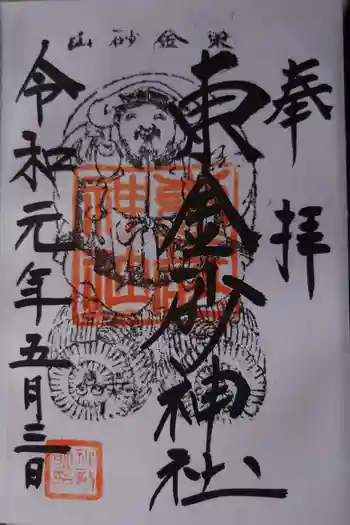 東金砂山
奉拝
東金砂神社
令和元年五月三日